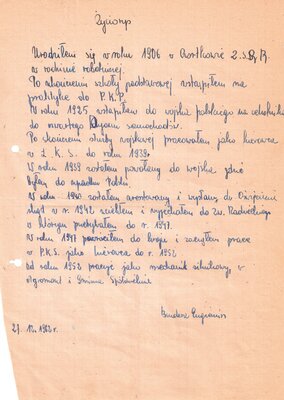 Życiorys
Urodziłem się w roku 1906 w Z.S.R.R.
w rodzinie robotniczej.
Po skończeniu szkoły podstawowej wstąpiłem na
praktykę do P.K.P.
W roku 1925 wstąpiłem do wojska polskiego na
do czwartego samochodów.
Po skończeniu służby wojskowej pracowałem jako kierowca
w Ł.K.S. do roku 1939.
W roku 1939 zostałem powołany do wojska gdzie
byłem do upadku Polski.
W roku 1940 zostałem aresztowany i wysłany do
skąd w r. 1942 i wyjechałem do Zw. Radzieckiego
w którym przebyłem do r. 1947.
W roku 1947 powróciłem do kraju i zacząłem pracę
w P.K.S. jako kierowca do r. 1952
od roku 1952 pracuję jako mechanik silnikowy w
i Gminna Spółdzielnia
27. 12. 1962 r.